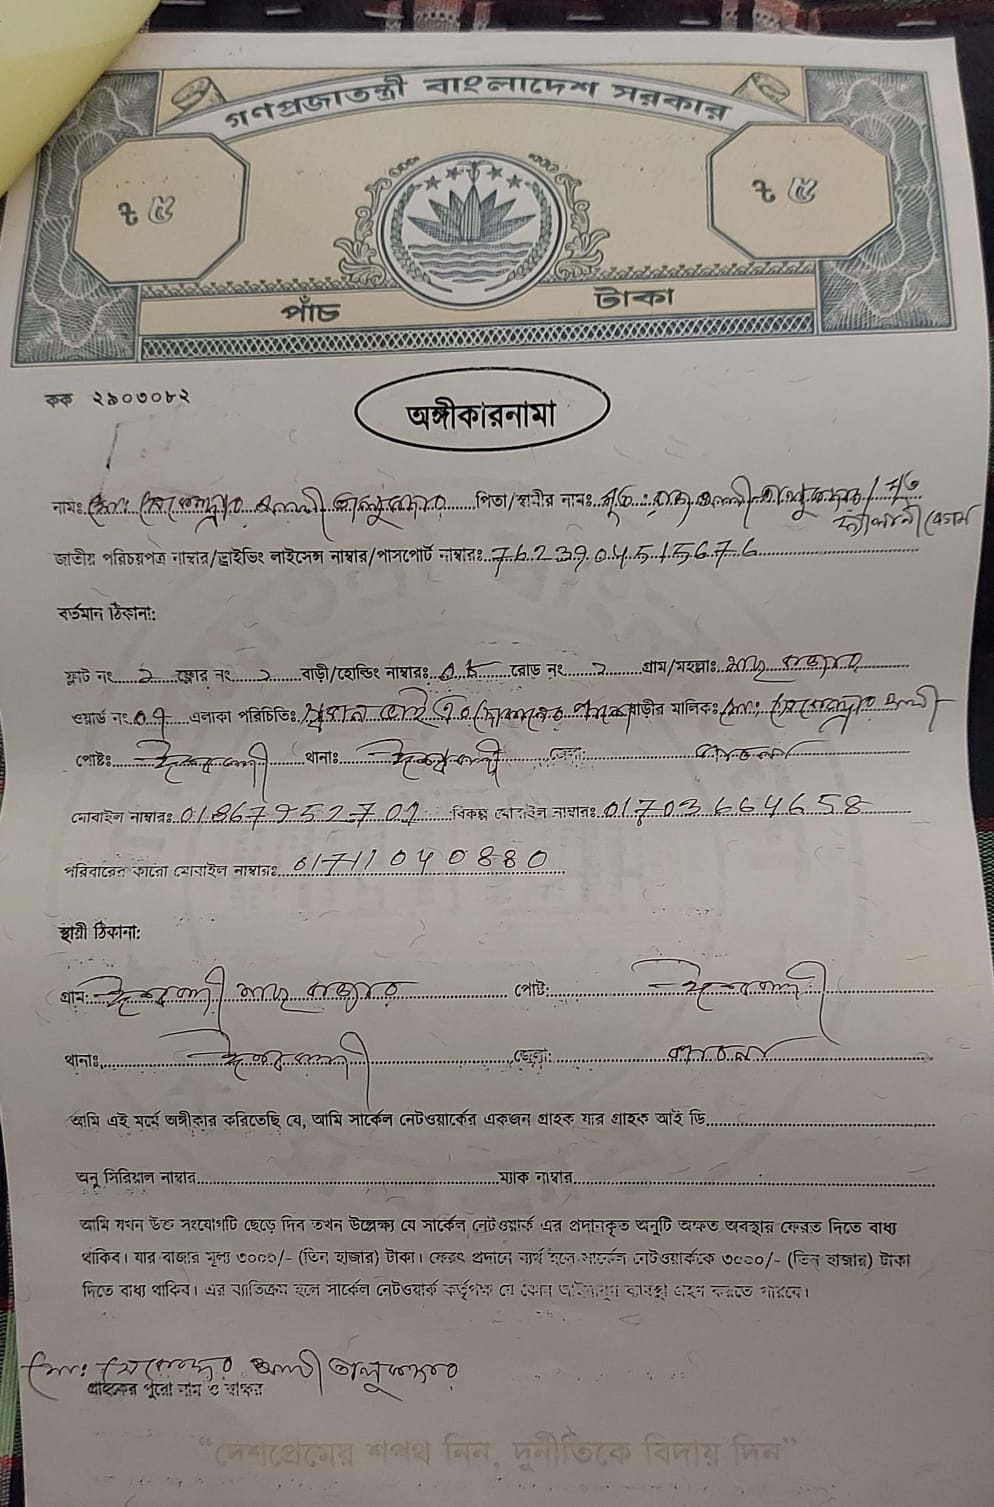 গণপ্রজাতন্ত্রী বাংলাদেশ সরকার
৳ ৫ ৳ ৫
পাঁচ টাকা
কক ২৯০৩০৮২
অঙ্গীকারনামা
নামঃ মোঃ আলী তালুকদার পিতা/স্বামীর নামঃ মৃত আলী তালুকদার / মৃত
বেগম
জাতীয় পরিচয়পত্র নাম্বার/ড্রাইভিং লাইসেন্স নাম্বার/পাসপোর্ট নাম্বারঃ 7623904515676
বর্তমান ঠিকানা:
ফ্লাট নং 2 ফ্লোর নং 2 বাড়ী/হোল্ডিং নাম্বারঃ রোড নং 2 গ্রাম/মহল্লাঃ
ওয়ার্ড নং 07 এলাকা পরিচিতিঃ বাড়ীর মালিকঃ মোঃ আলী
পোষ্টঃ ঈশ্বরদী থানাঃ ঈশ্বরদী জেলা: পাবনা
মোবাইল নাম্বারঃ বিকল্প মোবাইল নাম্বারঃ 01703664658
পরিবারের কারো মোবাইল নাম্বারঃ 01711040880
স্থায়ী ঠিকানা:
গ্রাম: ঈশ্বরদী পোষ্ট: ঈশ্বরদী
থানাঃ ঈশ্বরদী জেলা: পাবনা
আমি এই মর্মে অঙ্গীকার করিতেছি যে, আমি সার্কেল নেটওয়ার্কের একজন গ্রাহক যার গ্রাহক আই ডি
অনু সিরিয়াল নাম্বার ম্যাক নাম্বার
আমি যখন উক্ত সংযোগটি ছেড়ে দিব তখন উল্লেক্ষ্য যে সার্কেল নেটওয়ার্ক এর প্রদানকৃত অনুটি অক্ষত অবস্থায় ফেরত দিতে বাধ্য
থাকিব। যার বাজার মূল্য ৩০০০/- (তিন হাজার) টাকা। ফেরৎ প্রদানে ব্যর্থ হলে সার্কেল নেটওয়ার্ককে ৩০০০/- (তিন হাজার) টাকা
দিতে বাধ্য থাকিব। এর ব্যতিক্রম হলে সার্কেল নেটওয়ার্ক কর্তৃপক্ষ যে কোন আইনানুগ ব্যবস্থা গ্রহন করতে পারবে।
মোঃ আলী তালুকদার
গ্রাহকের পুরো নাম ও স্বাক্ষর
“দেশপ্রেমের শপথ নিন, দুর্নীতিকে বিদায় দিন”